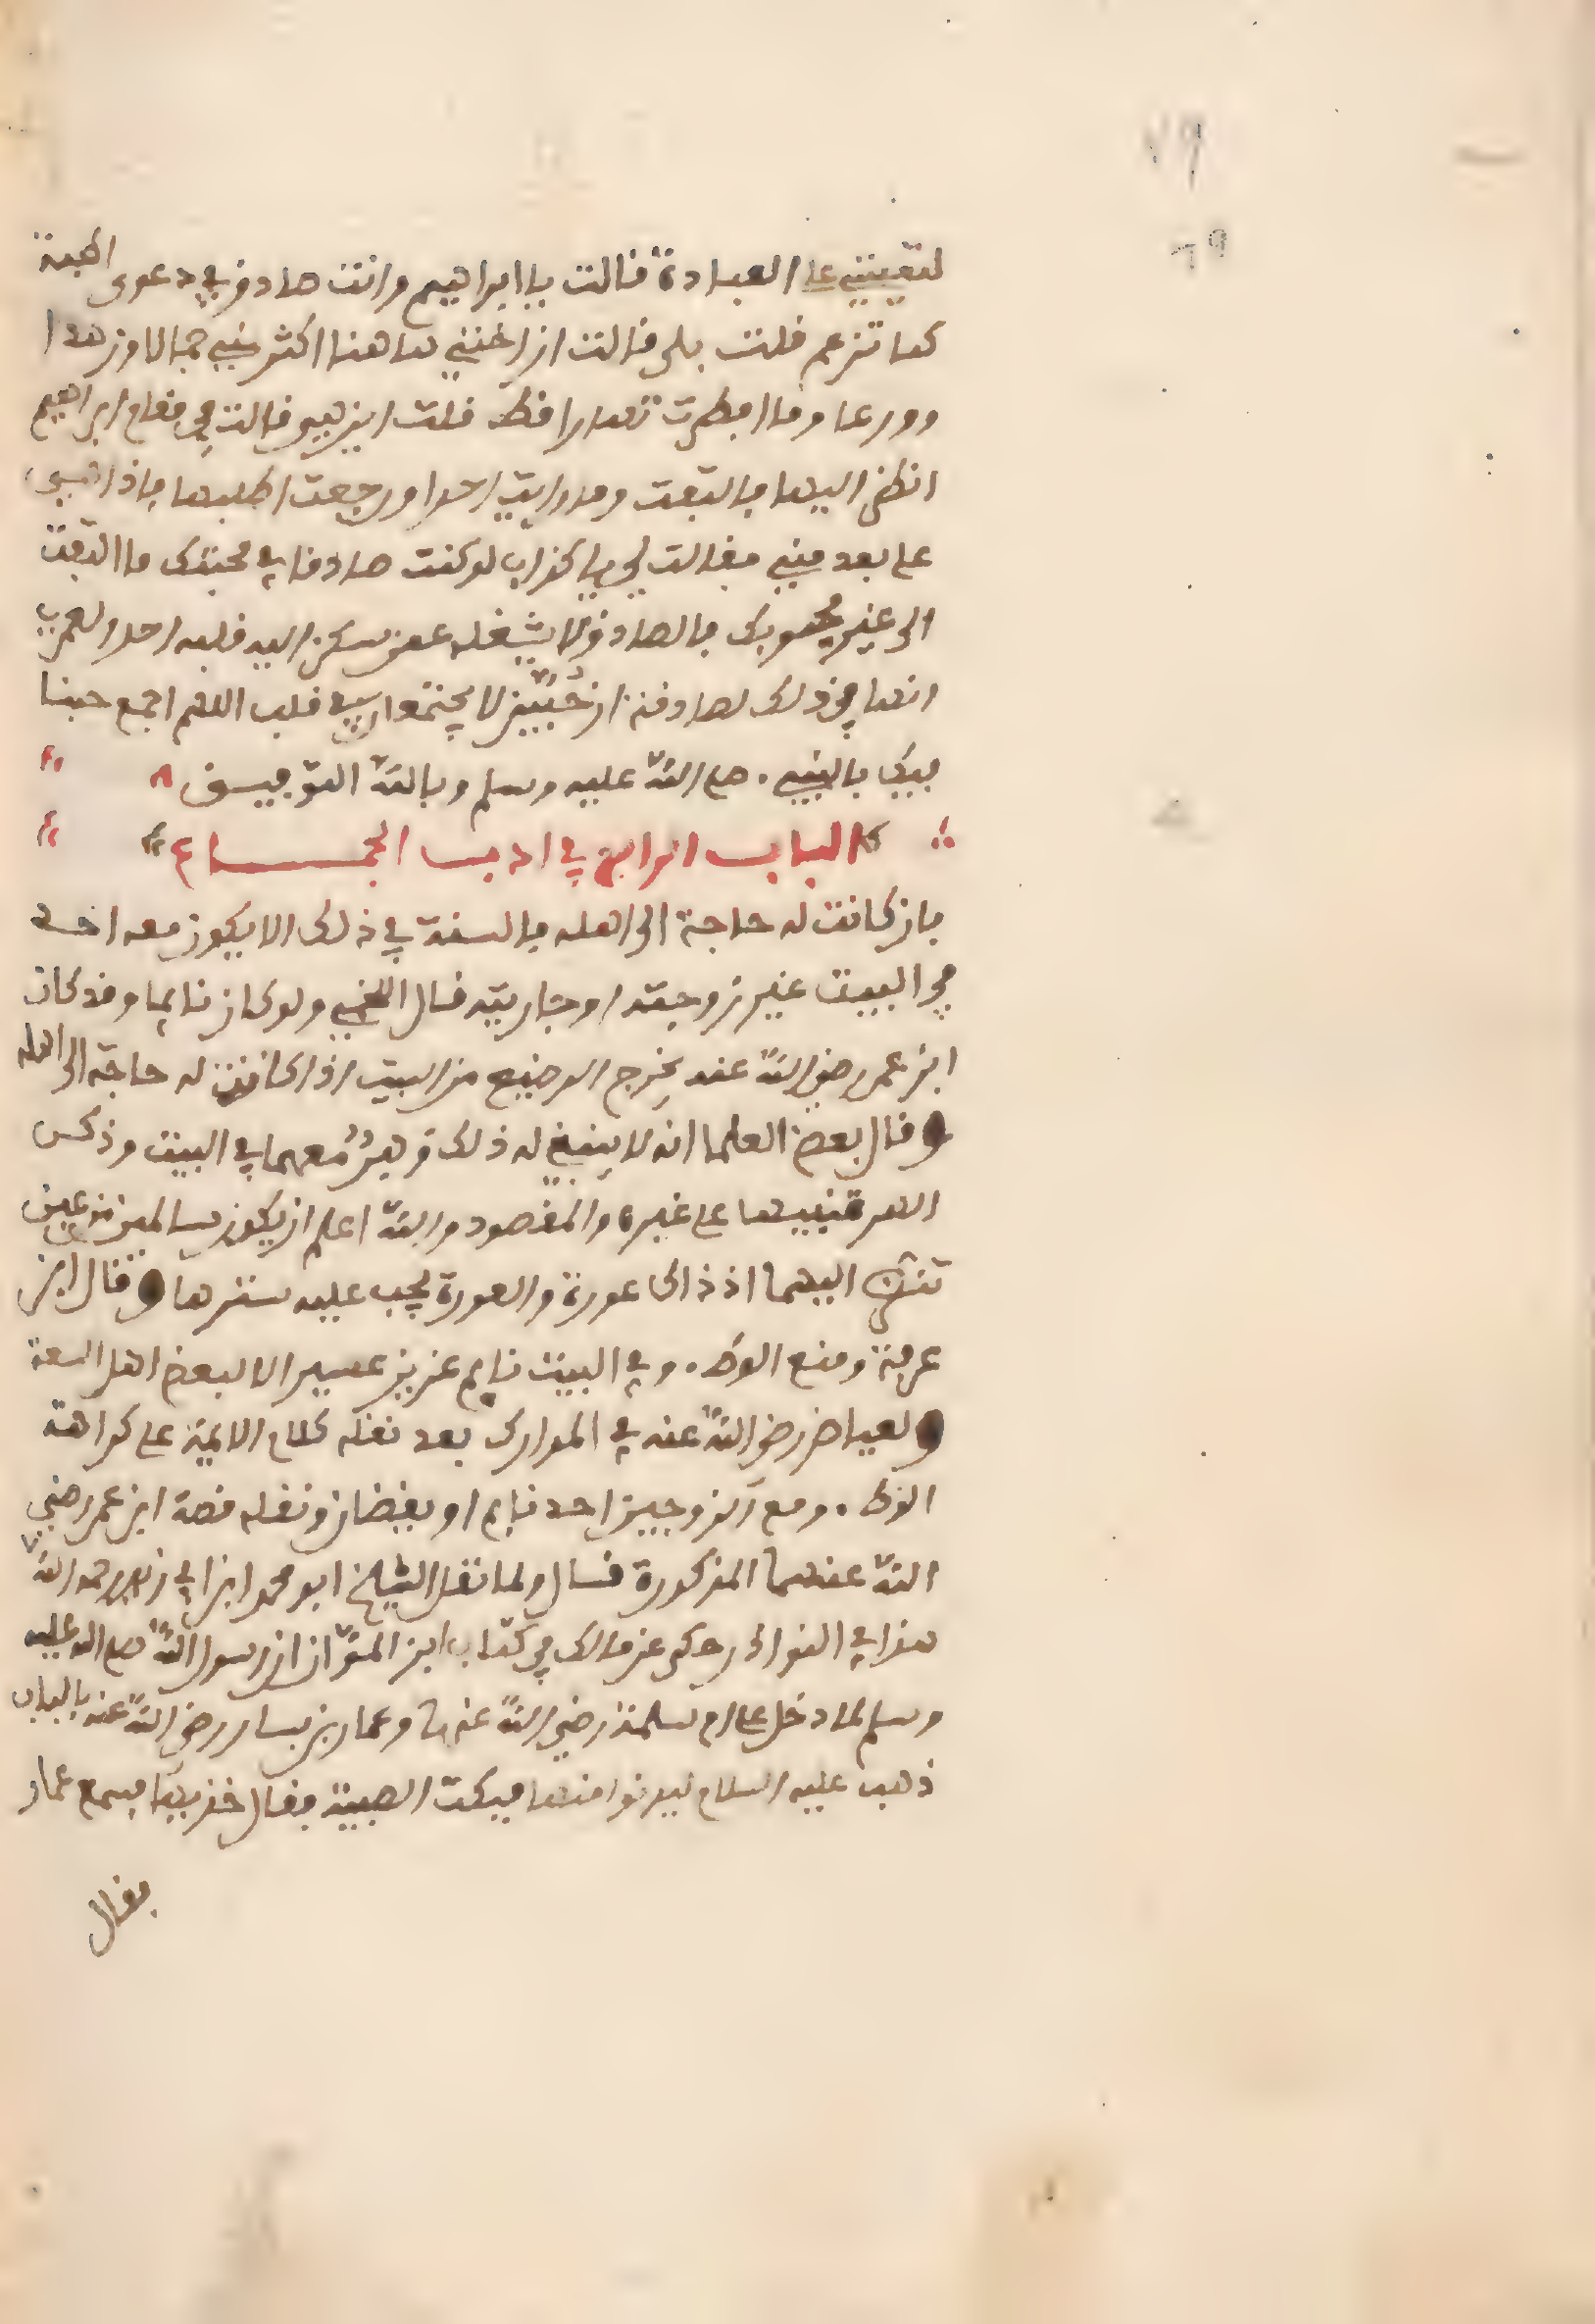 ٧٩
٦٩
لتعينني على العبادة قالت يا ابراهيم وانت صادق في دعوى المحبة
كما تزعم قلت بلى قالت ان اختي هاهنا اكثر مني جمالا وزهدا
وورعا وما افطرت نهارا قط قلت اين هي قالت في مقام ابراهيم
انظر اليها فالتفت وما رايت احدا ورجعت اطلبها فاذا هي
على بعد مني فقالت لي يا كذاب لو كنت صادقا في محبتك ما التفت
الى غير محبوبك فالصادق لا يشغله عمن سكن اليه قلبه احد ولعمري
انها في ذلك لصادقة ان حُبَّين لا يجتمعان في قلب اللهم اجمع حبنا
فيك بالنبي صلى الله عليه وسلم وبالله التوفيق
الباب الرابع في ادب الجماع
فان كانت له حاجة الى اهله فالسنة في ذلك الا يكون معه احد
في البيت غير زوجته او جاريته قال اللخمي ولو كان نايما وقد كان
ابن عمر رضي الله عنه يخرج الرضيع من البيت اذا كانت له حاجة الى اهله
وقال بعض العلما انه لا ينبغي له ذلك وهرٌّ معهما في البيت وذكر
الهر تنبيها على غيره والمقصود والله اعلم ان يكون سالمين من عين
تنظر اليهما اذ ذاك عورة والعورة يجب عليه سترها وقال ابن
عرفة ومنع الوطء وفي البيت نايم عزيز عسير الا لبعض اهل السعة
ولعياض رضي الله عنه في المدارك بعد نقله كلام الايمة على كراهة
الوطء ومع الزوجين احد نايم او يقضان ونقله قصة ابن عمر رضي
الله عنهما المذكورة قال ولما نقل الشيخ ابو محمد ابن ابي زيد رحمه الله
هذا في النوادر حكى عن مالك في كتاب ابن المواز ان رسول الله صلى الله عليه
وسلم لما دخل على ام سلمة رضي الله عنها وعمار بن يسار رضي الله عنه بالباب
ذهب عليه السلام ليدنوا منها فبكت الصبية فقال خذيها فسمع عمار
فقال